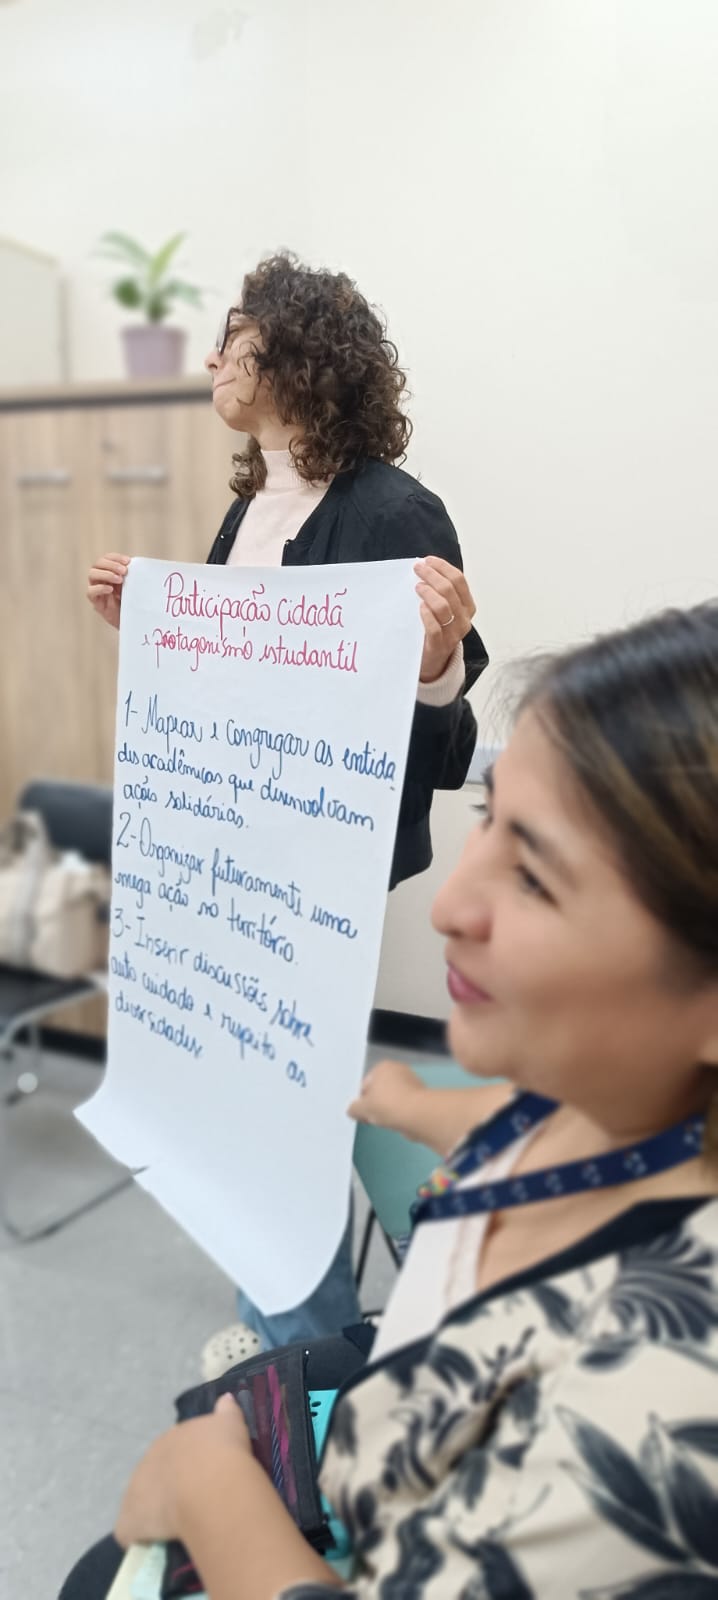 Participação cidadã
e protagonismo estudantil
1- Mapear e congregar as entida
des acadêmicas que desenvolvam
ações solidárias.
2- Organizar futuramente uma
mega ação no território.
3- Inserir discussões sobre
auto cuidado e respeito as
diversidades